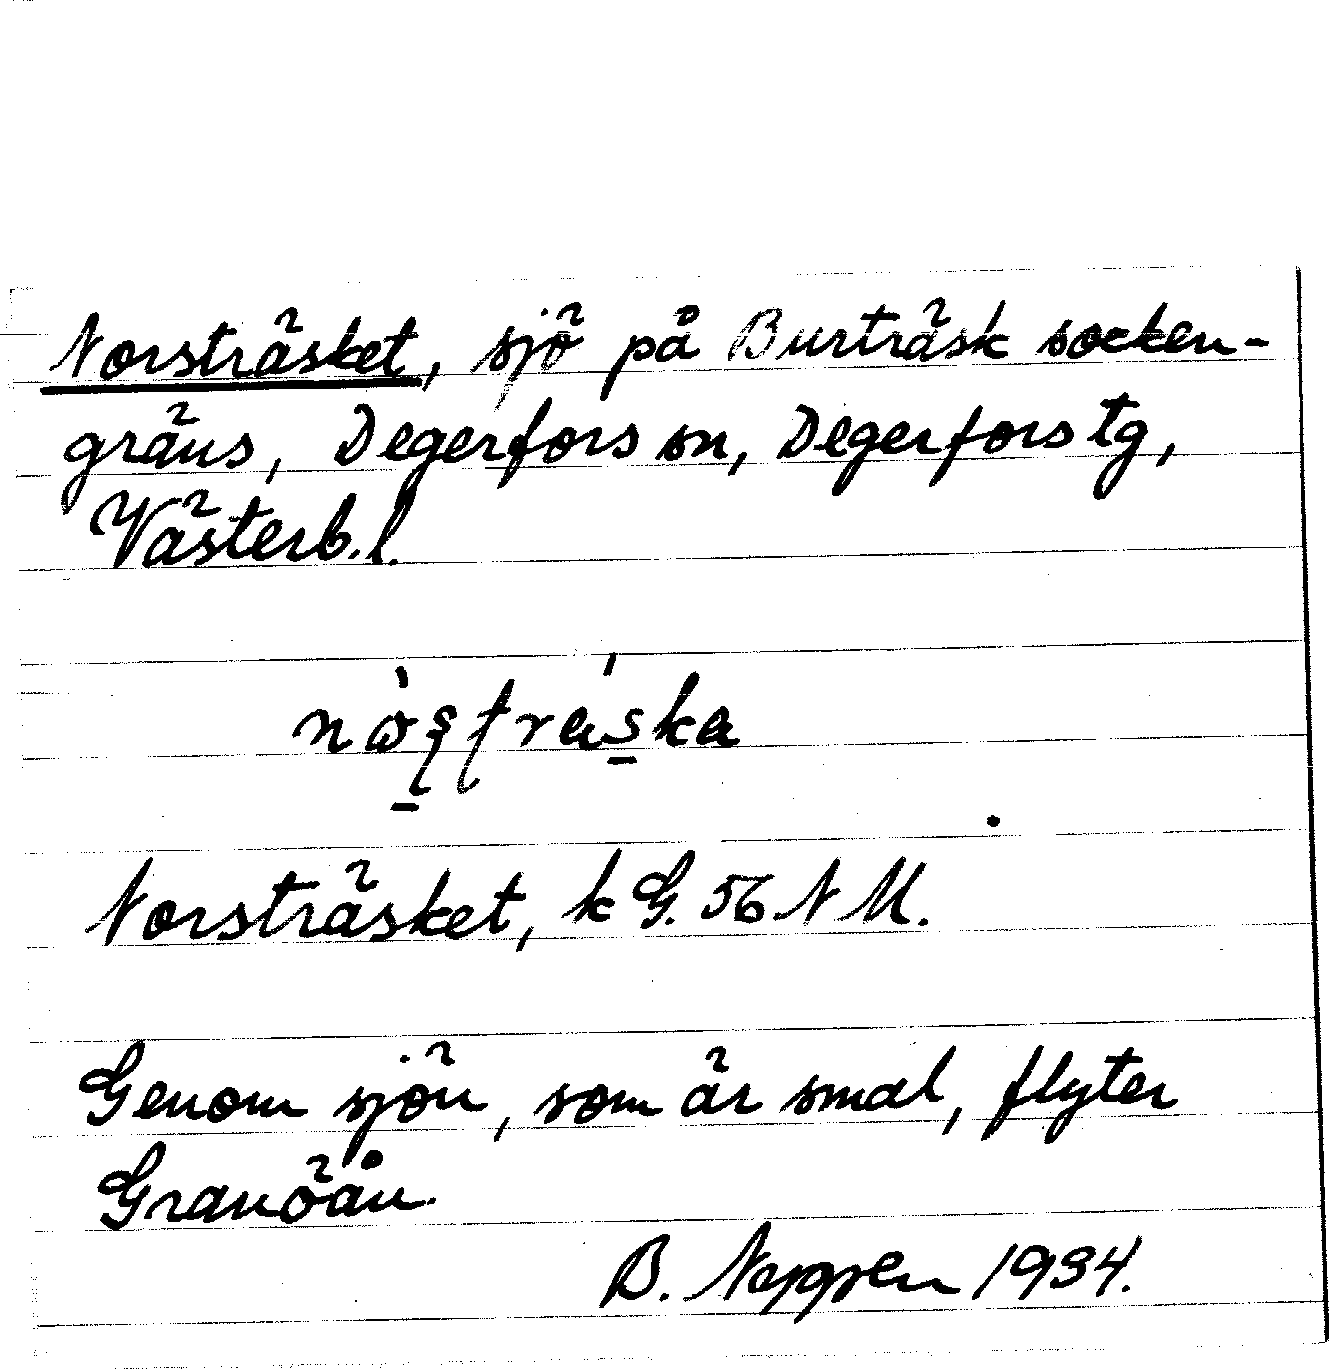 Norsträsket, sjö på Burträsk socken-
gräns, Degerfors sn, Degerfors tg,
Västerb. l.
Norsträsket, k G. 56 N M.
Genom sjön, som är smal, flyter
Granöån.
B. 1934.